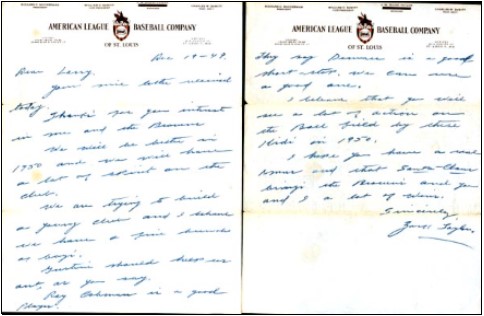 AMERICAN LEAGUE BASEBALL COMPANY
OF ST. LOUIS
Dec 19-49
Dear Larry,
Your nice letter received
today. Thanks for your interest
in me and the Browns
We will be better in
1950 and we will have
a lot of talent on the
club.
We are trying to build
a young club and I believe
we have a fine bunch
of boys.
should help us
out as you say.
Ray Coleman is a good
player.
AMERICAN LEAGUE BASEBALL COMPANY
OF ST. LOUIS
They say is a good
short-stop. We have
a good one.
I believe that you will
see a lot of action on
the Ball field by these
Kids in 1950.
I hope you have a real
Xmas and that Santa-Claus
brings the Browns and you
and I a lot of wins.
Sincerely
Zack Taylor